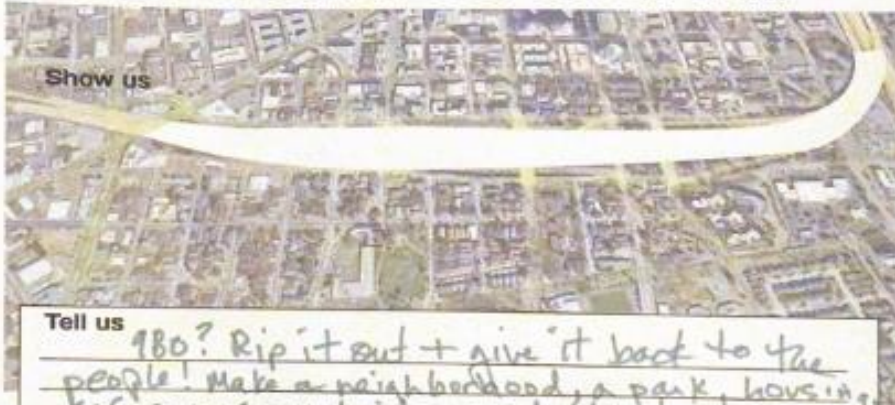 Show us
Tell us
980? Rip it out + give it back to the
people! Make a neighborhood, a park, housing